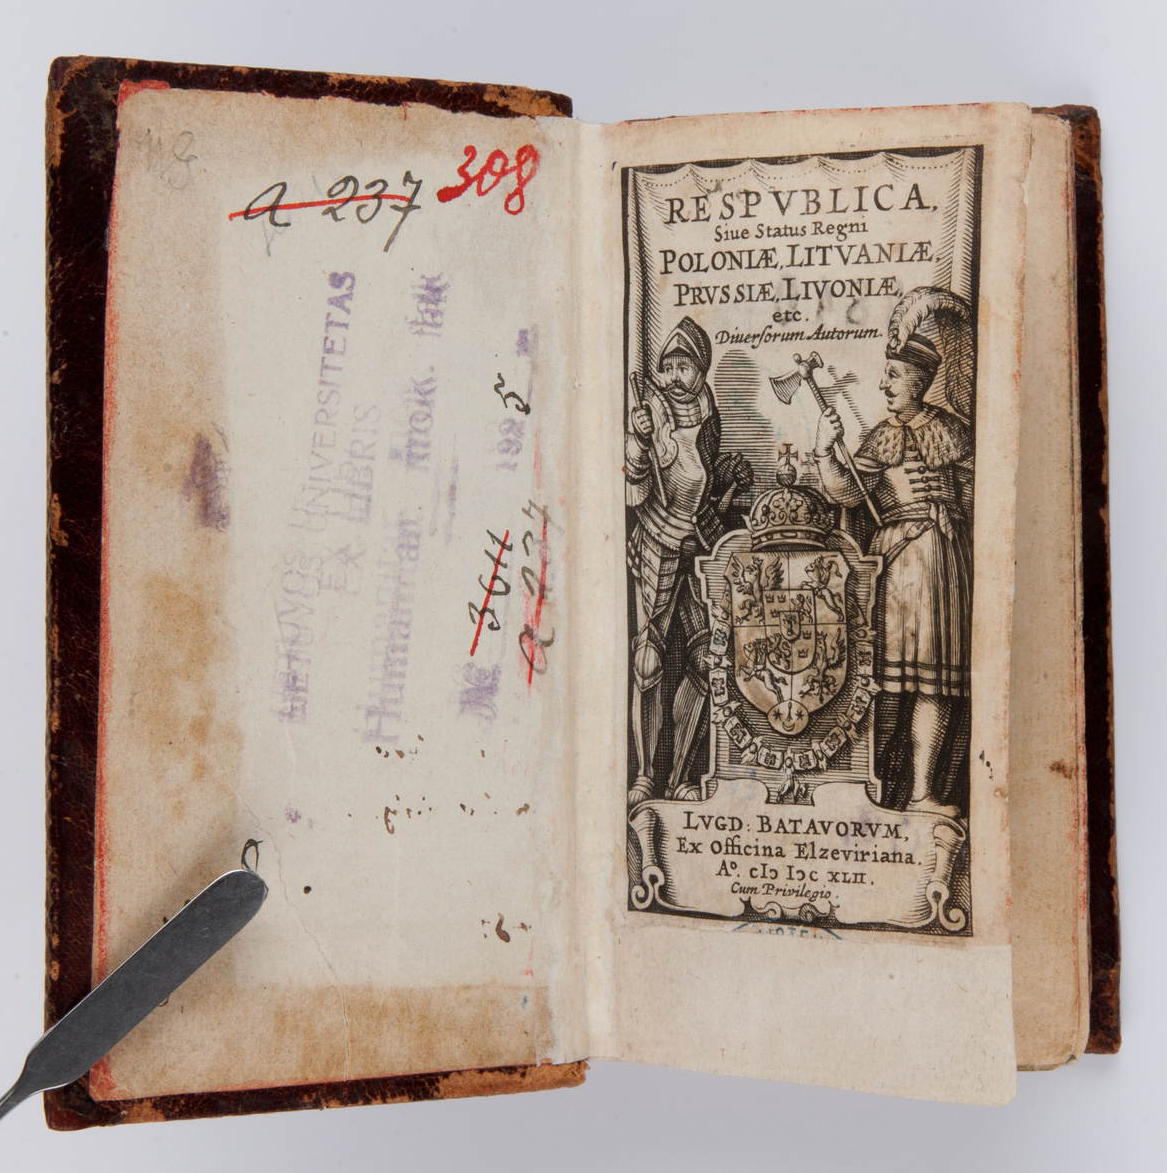 a 237 308
LIETUVOS UNIVERSITETAS
EX LIBRIS
Humanitar.
№ 3611 1925
a 237
RESPVBLICA,
Siue Status Regni
POLONIÆ, LITVANIÆ,
PRVSSIÆ, LIVONIÆ,
etc.
Diuersorum Autorum.
LVGD: BATAVORVM,
Ex Officina Elzeviriana.
Aº. cIↄ Iↄc XLII.
Cum Privilegio.